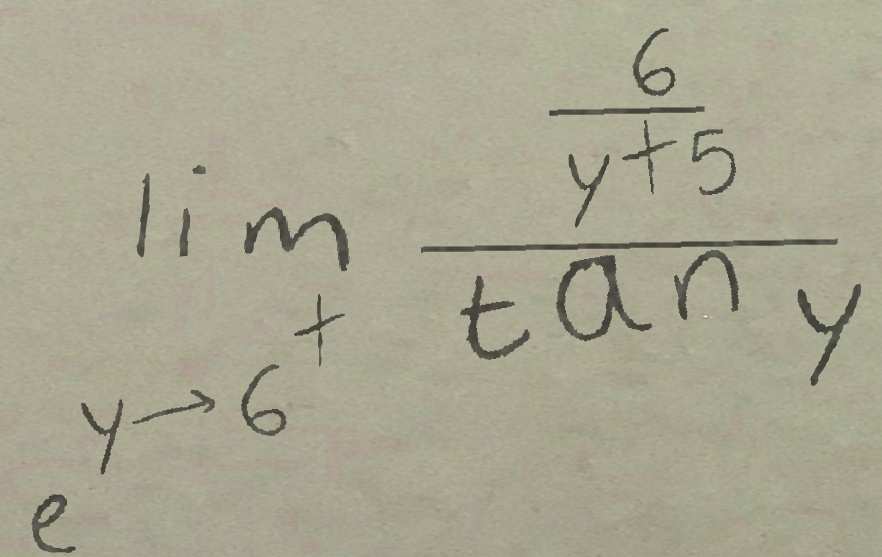 e^{\lim_{y \to 6^{+}} \frac{\frac{6}{y+5}}{\tan y}}